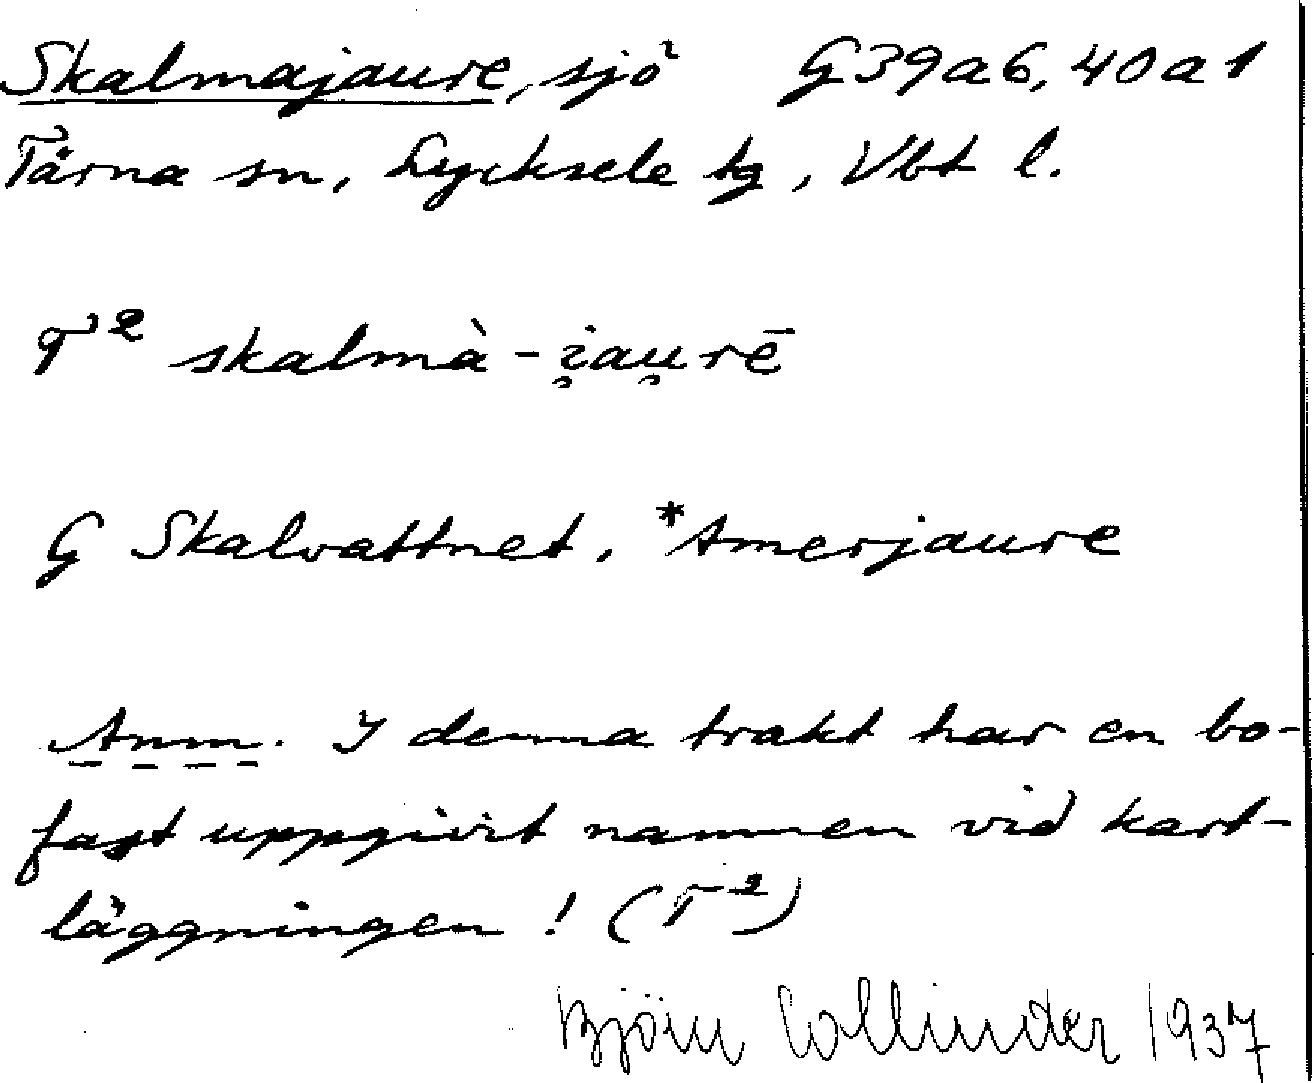 Skalmajaure, sjö G39a6, 40a1
Tärna sn, Lycksele tg, Vbt l.
T² skalmà-i̯au̯rē
G Skalvattnet, *Amerjaure
Anm. I denna trakt har en bo-
fast uppgivit namnen vid kart-
läggningen! (T²)
Björn Collinder 1937